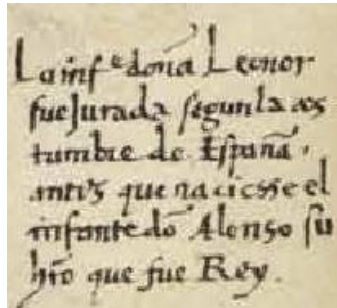 La infe doña Leonor
fue Jurada segun la cos
tumbre de España.
antes que naciesse el
infante dō Alonso su
hijo que fue Rey.